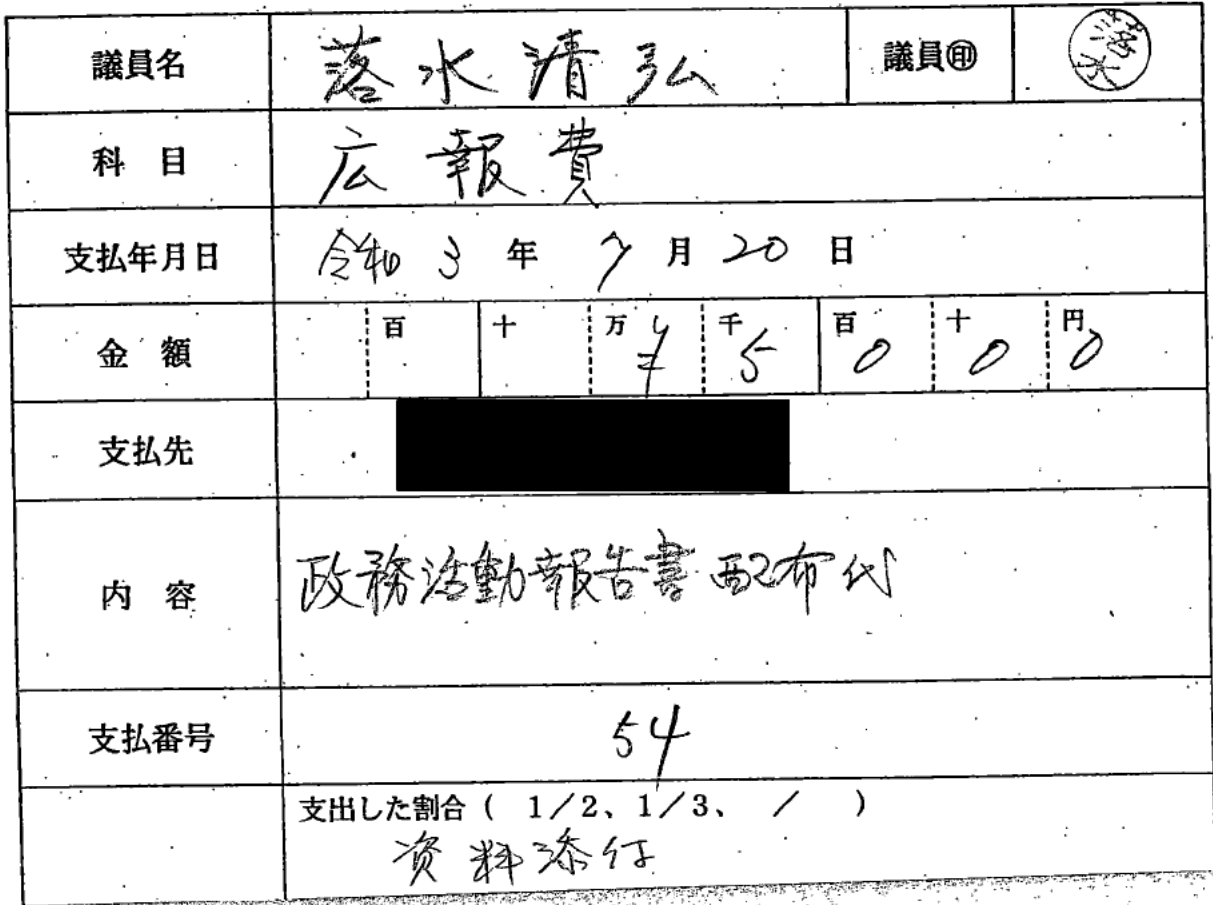 議員名 落水清弘 議員㊞ 落水
科 目 広報費
支払年月日 令和 3 年 7 月 20 日
金 額 百 十 万 ¥ 千 5 百 0 十 0 円 0
支払先
内 容 政務活動報告書配布代
支払番号 54
支出した割合( 1/2、1/3、 / )
資料添付